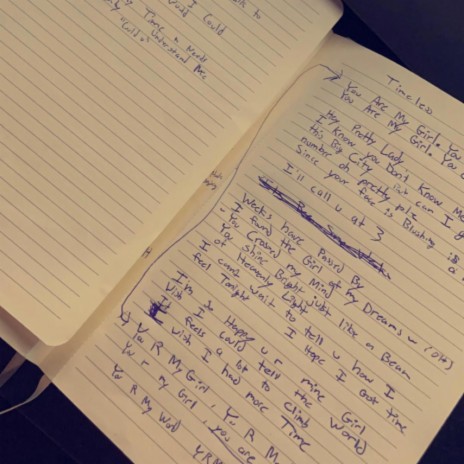 to
I Could
Time
Understand Me
only
"Cuz"
Timeless
You Are My Girl. You
You Are My Girl. You
Hey Pretty Lady
I know you Don't Know Me
this Big City but can I g
number oh pretty plz
Since your face is Blushing
I'll call u at 3
Weeks have Passed By
I found the Girl of my Dreams
- You Crossed my Mind
You Shine Bright just like a Beam
of Heavenly Light
I cant wait to tell u how I
feel Tonight I hope I Got time
I'm So Happy u r mine Girl
Wish I could tell the World
feels a lot to climb
I wish I had more Time
You R My Girl, You R M
You r my Girl, you are
You R My World
Y R M